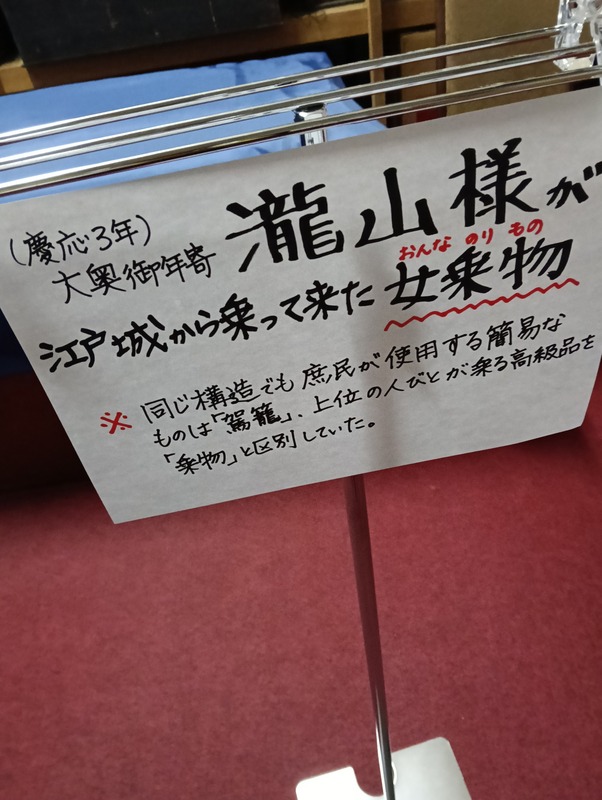 (慶応3年)
大奥御年寄 瀧山様が
おんな のり もの
江戸城から乗って来た 女乗物
※ 同じ構造でも庶民が使用する簡易な
ものは「駕籠」、上位の人びとが乗る高級品を
「乗物」と区別していた。